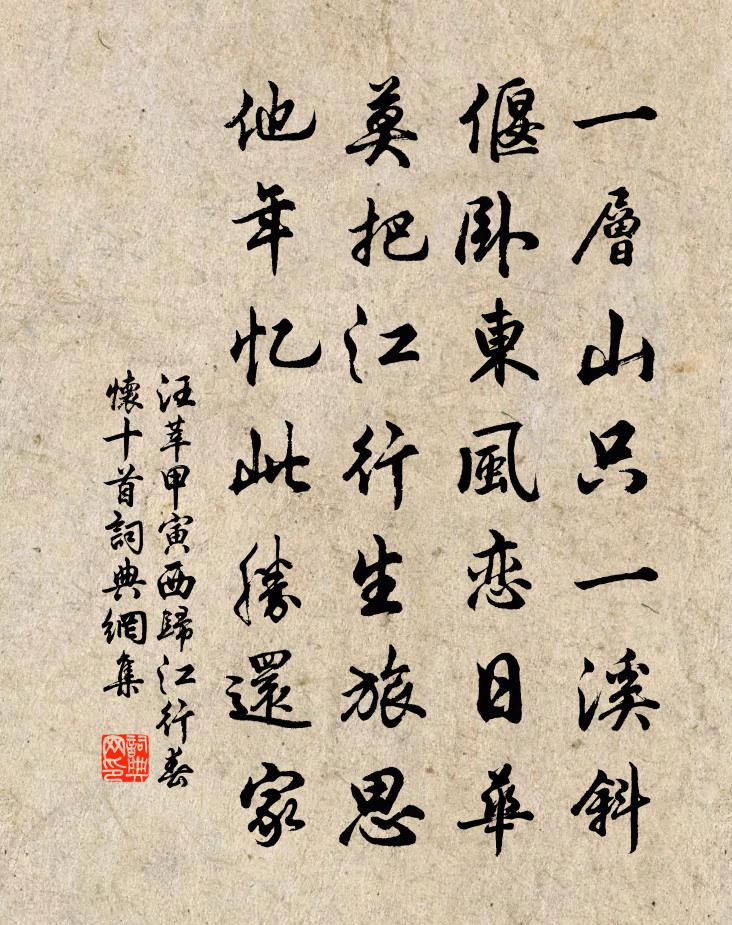 一層山只一溪斜
偃卧東風恋日華
莫把江行生旅思
他年忆此勝還家
汪莘甲寅西歸江行春
懷十首詞典網集
詞典
网印